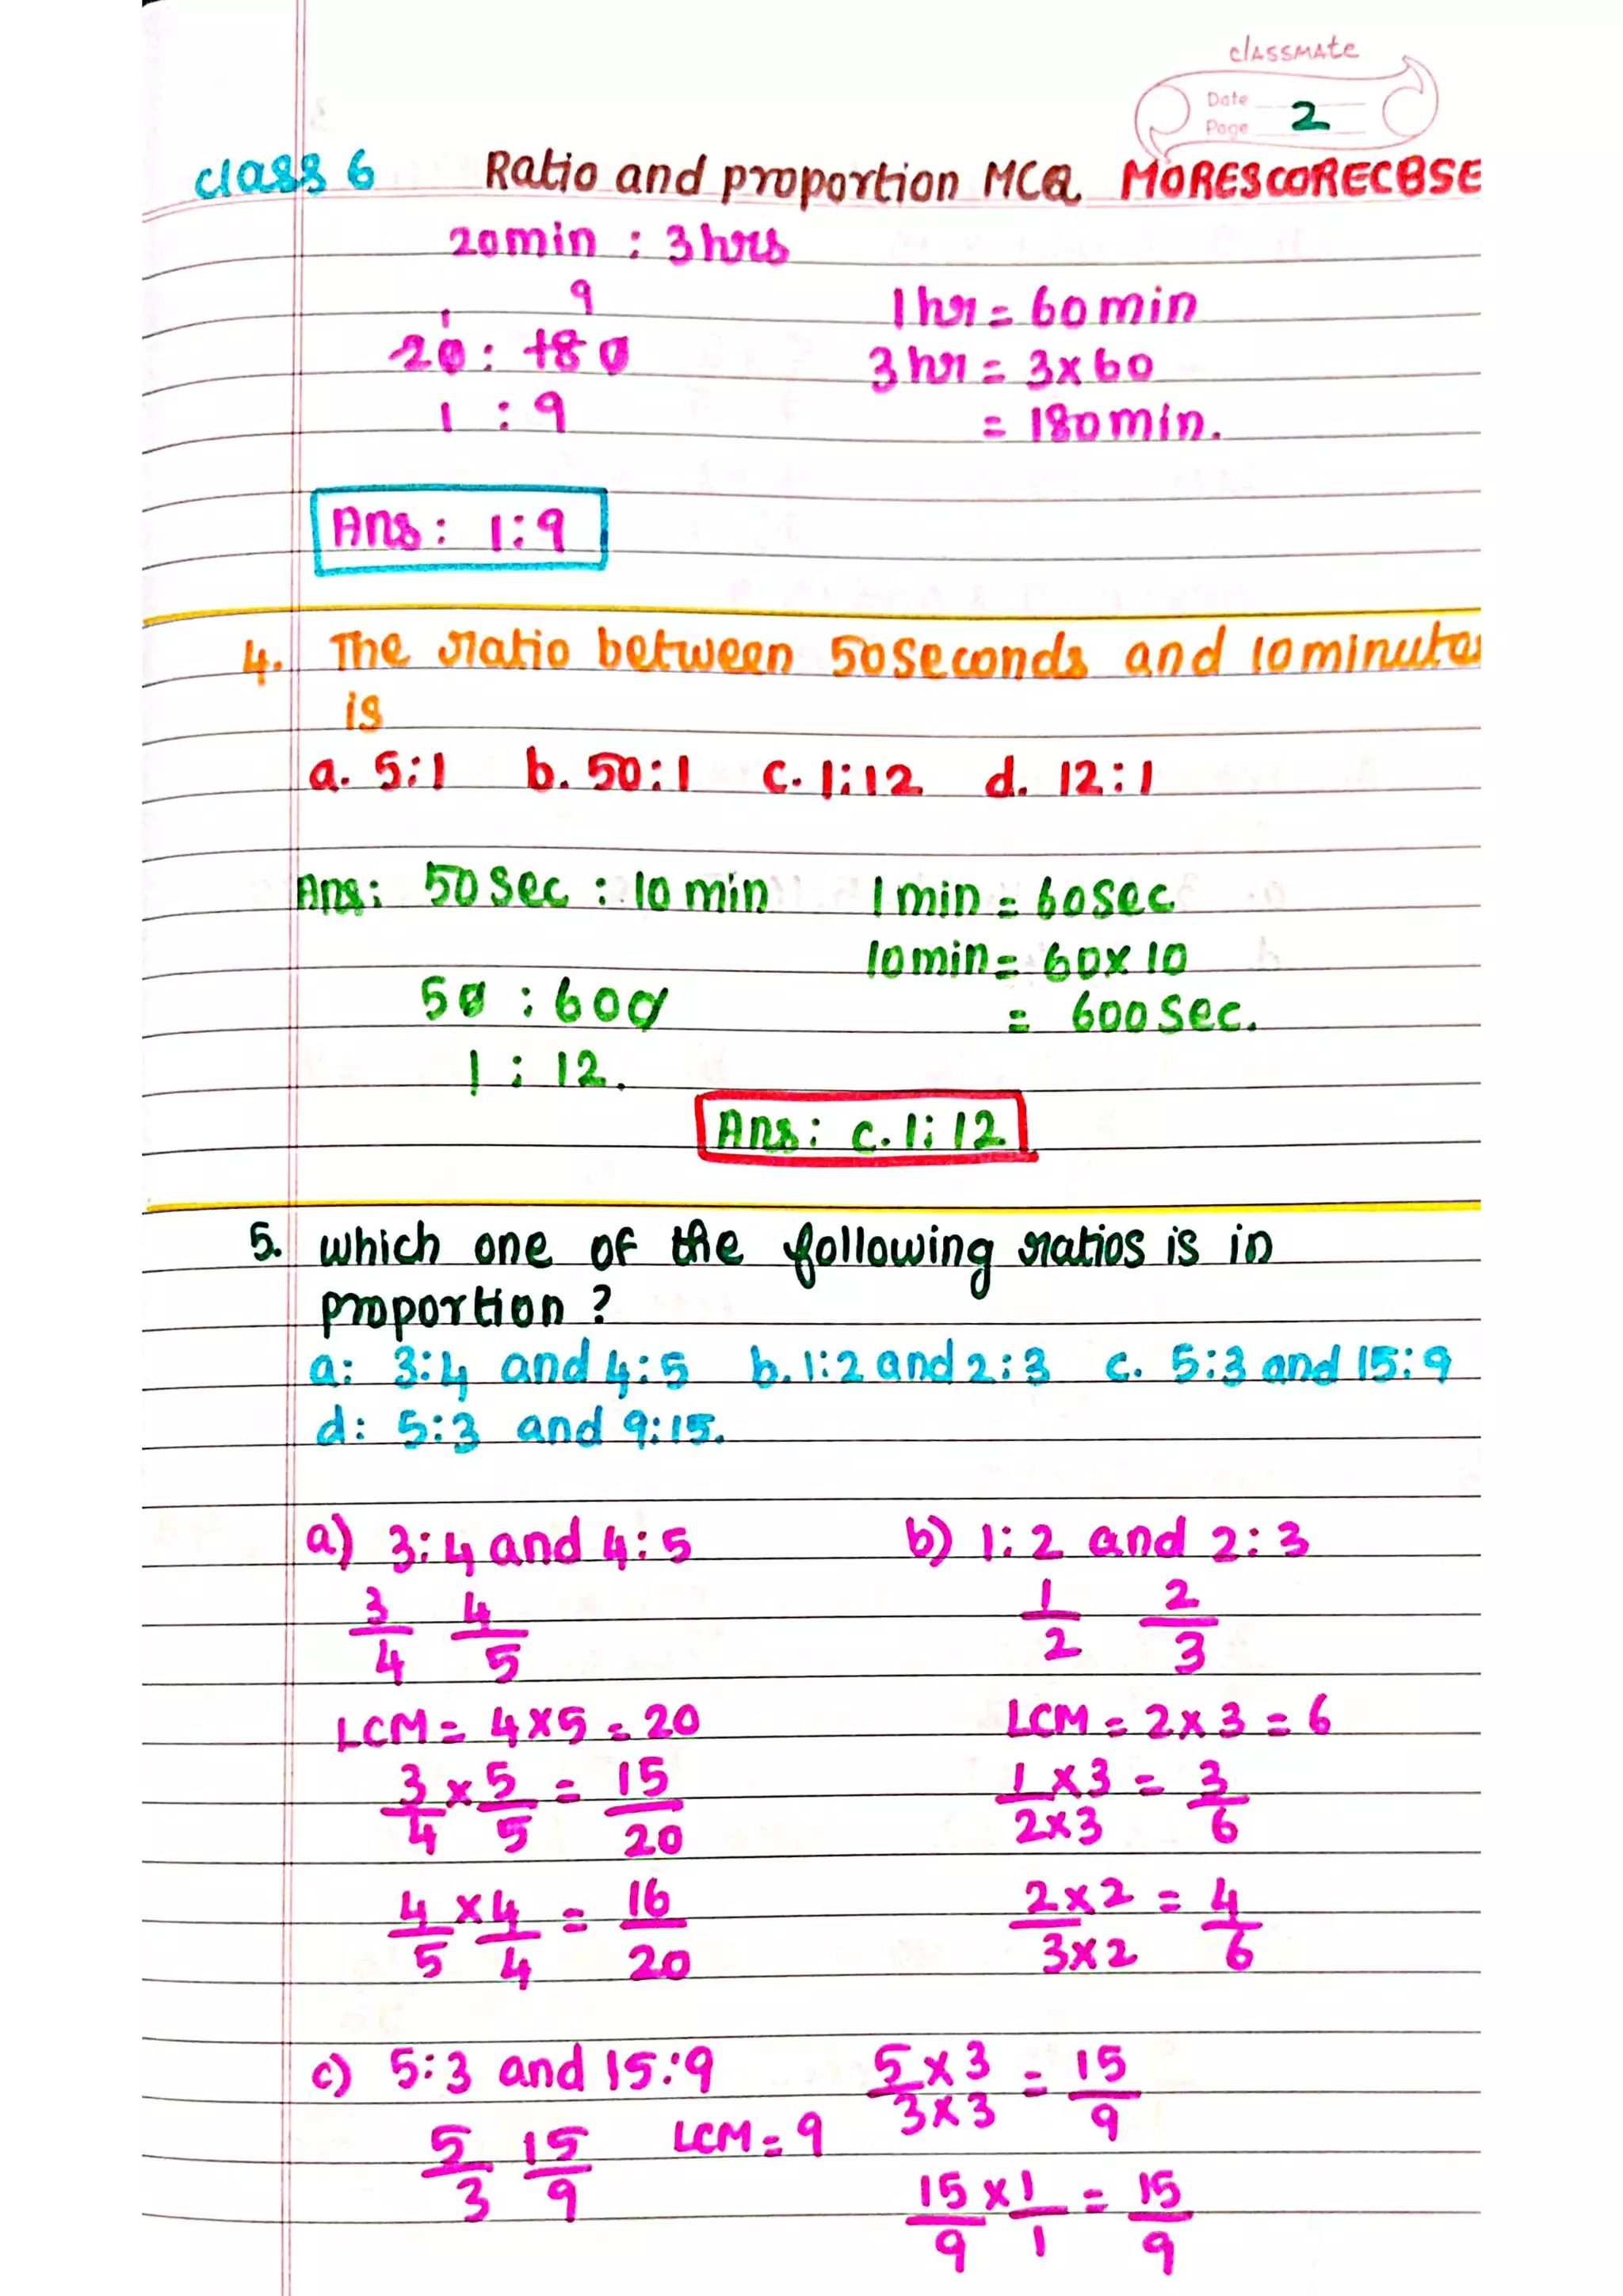 classmate
Date
Page 2
class 6 Ratio and proportion MCQ MORESCORECBSE
20min : 3hrs
1 9
20 : 180
1 : 9
1hr = 60min
3hr = 3x60
= 180min.
Ans: 1:9
4. The ratio between 50seconds and 10minutes
is
a. 5:1 b. 50:1 c. 1:12 d. 12:1
Ans: 50 sec : 10 min
1min = 60sec
10min = 60x10
= 600 sec.
50 : 600
1 : 12.
Ans: c. 1:12
5. which one of the following ratios is in
proportion ?
a: 3:4 and 4:5 b. 1:2 and 2:3 c. 5:3 and 15:9
d: 5:3 and 9:15.
a) 3:4 and 4:5
3/4 4/5
LCM = 4x5 = 20
3/4 x 5/5 = 15/20
4/5 x 4/4 = 16/20
b) 1:2 and 2:3
1/2 2/3
LCM = 2x3 = 6
1x3/2x3 = 3/6
2x2/3x2 = 4/6
c) 5:3 and 15:9
5/3 15/9 LCM = 9
5x3/3x3 = 15/9
15/9 x 1/1 = 15/9